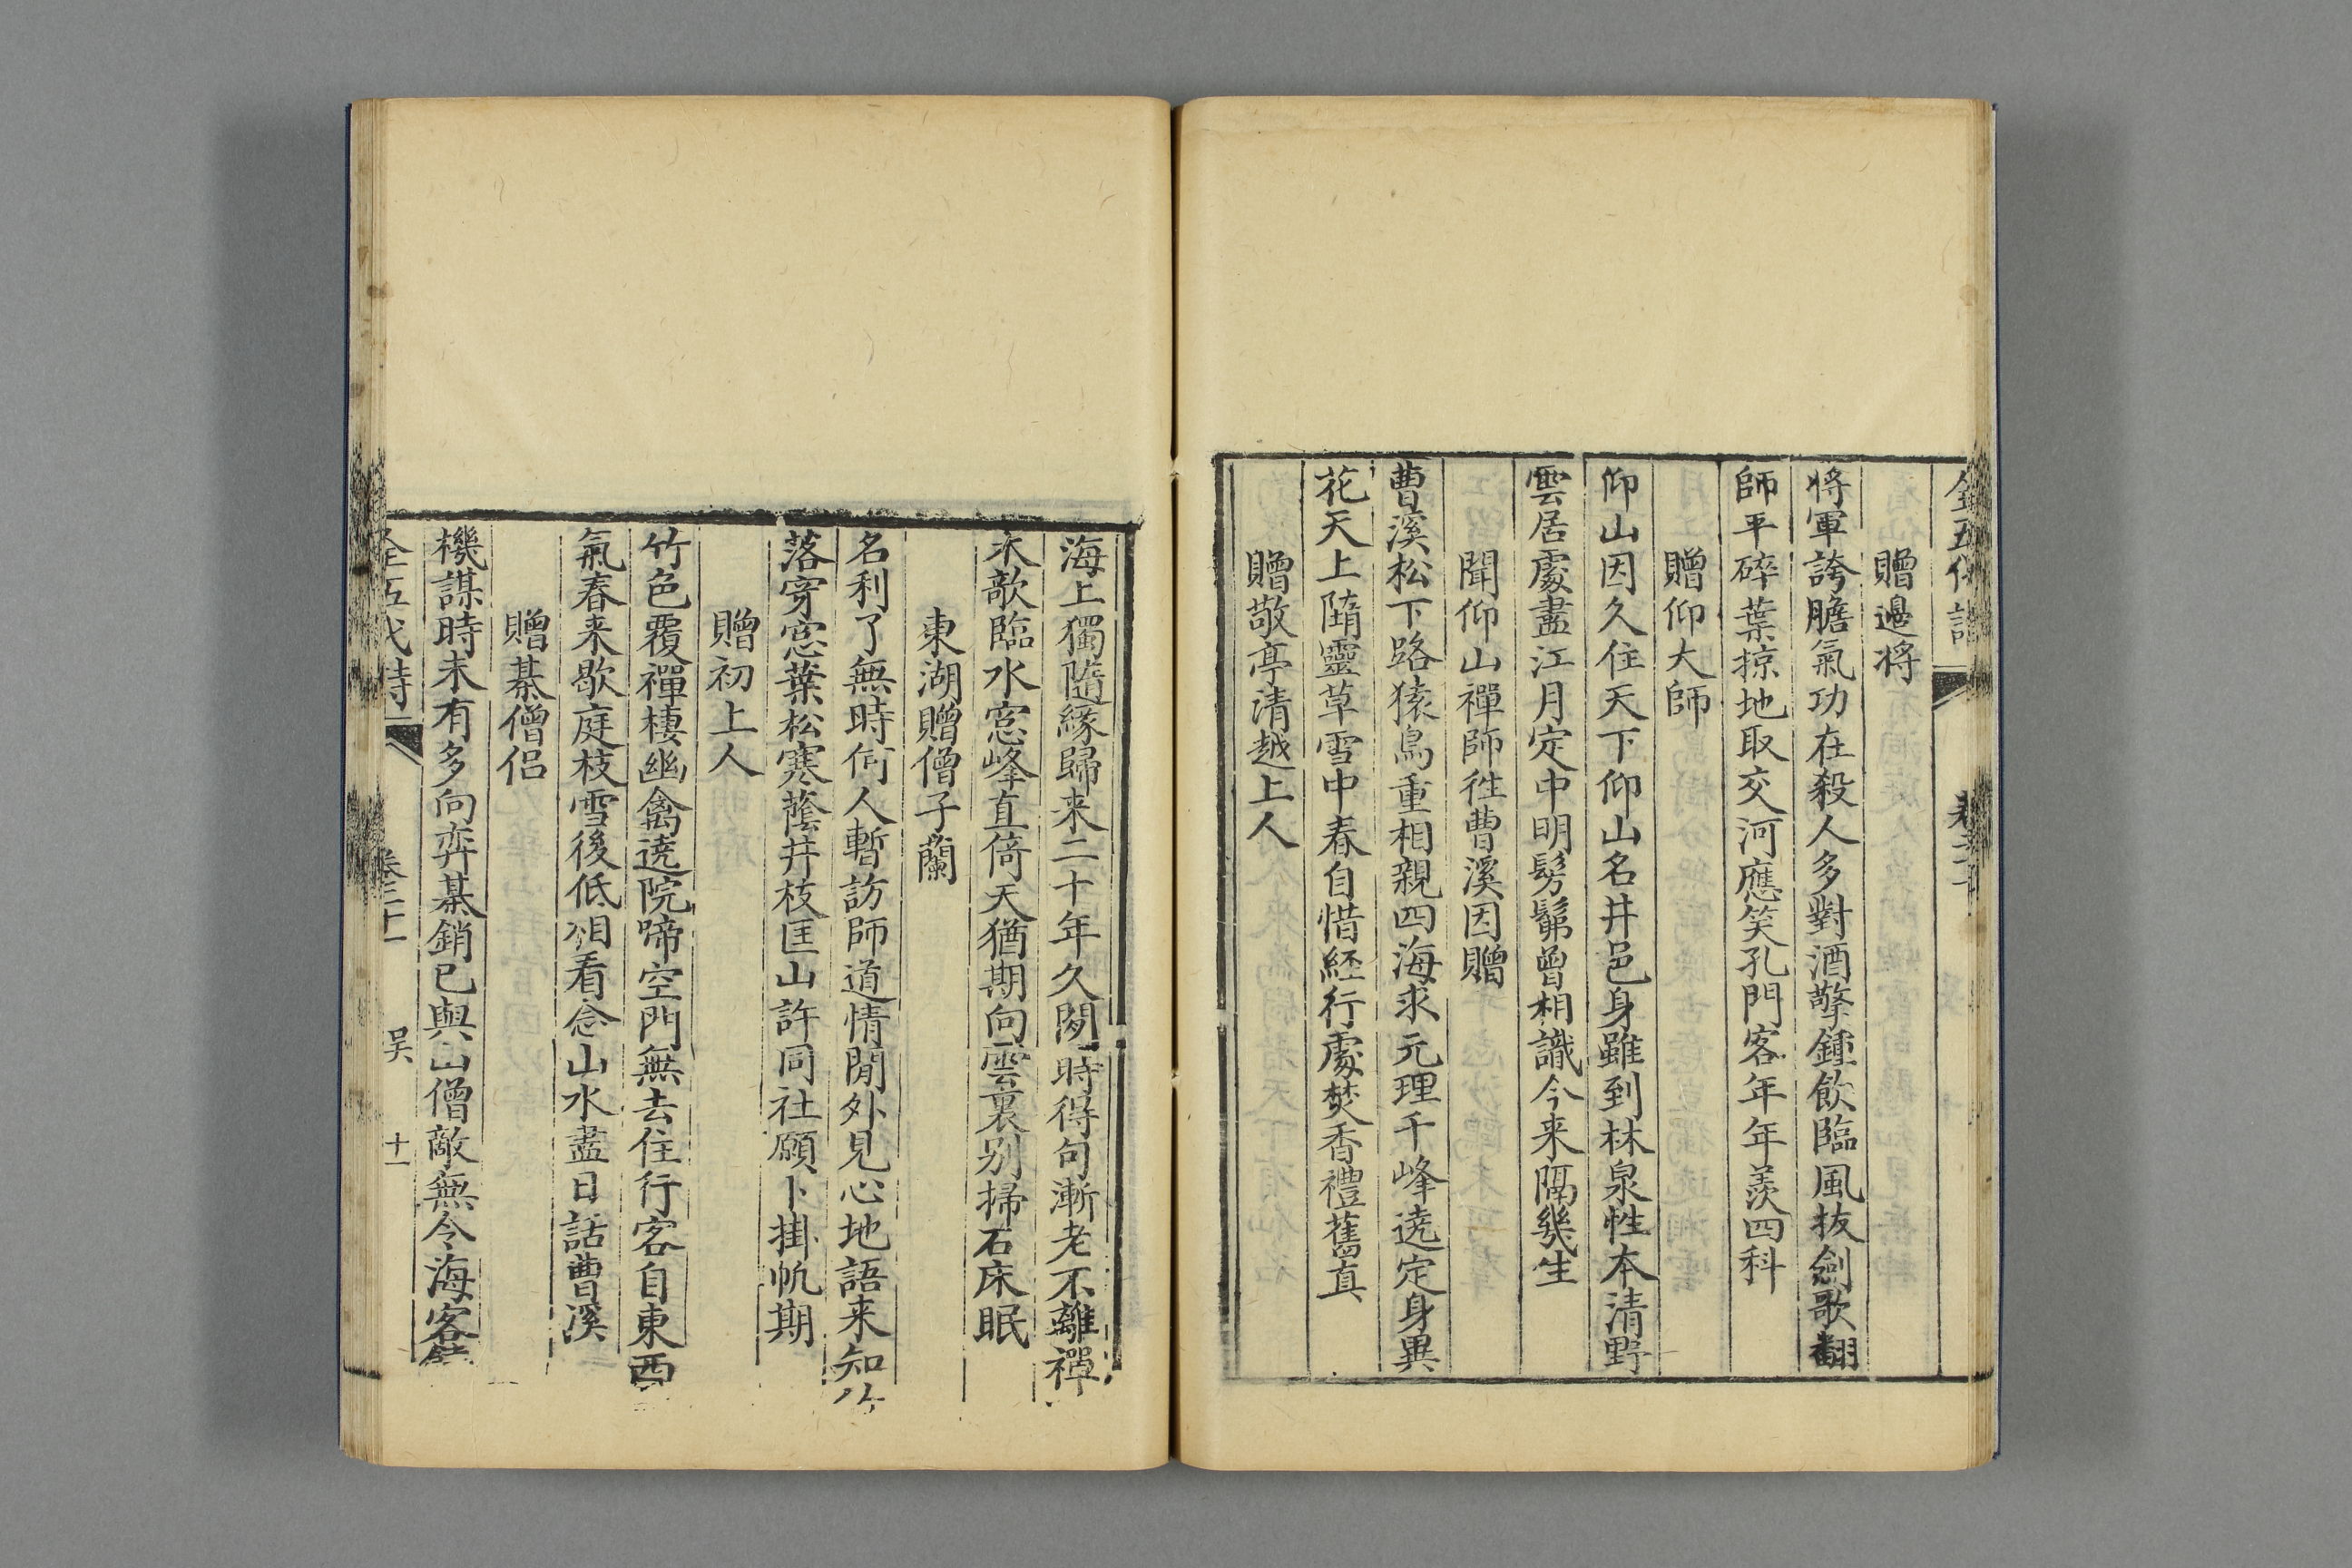 全五代詩
贈邉将
將軍誇膽氣功在殺人多對酒擎鍾飲臨風抜劍歌翻
師平碎葉掠地取交河應笑孔門客年年羨四科
贈仰大師
仰山因久住天下仰山名井邑身雖到林泉性本清野
雲居處盡江月定中明髣髴曾相識今来隔幾生
聞仰山禪師徃曹溪因贈
曹溪松下路猿鳥重相親四海求元理千峰遶定身異
花天上隋靈草雪中春自惜経行處焚香禮舊真
贈敬亭清越上人
海上獨隨緣歸来二十年久閱時得句漸老不離禪
木欹臨水窓峰直倚天猶期向雲裏别掃石床眠
東湖贈僧子蘭
名利了無時何人暫訪師道情閒外見心地語来知竹
落穿窓葉松寒蔭井枝匡山許同社願卜掛帆期
贈初上人
竹色覆禪棲幽禽遶院啼空門無去住行客自東西
氣春来歇庭枝雪後低相看念山水盡日話曹溪
贈棊僧侶
機謀時未有多向弈棊銷已與山僧敵無令海客饒
全五代詩 卷三十一 吴 十一